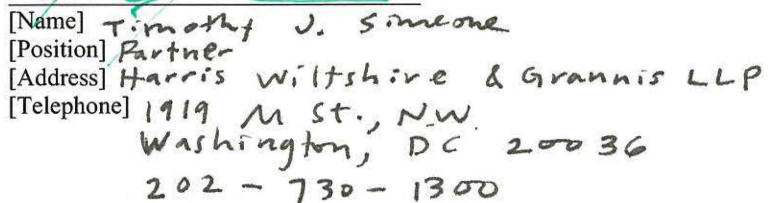 [Name] Timothy J. Simeone
[Position] Partner
[Address] Harris Wiltshire & Grannis LLP
[Telephone] 1919 M St., N.W.
Washington, DC 20036
202-730-1300